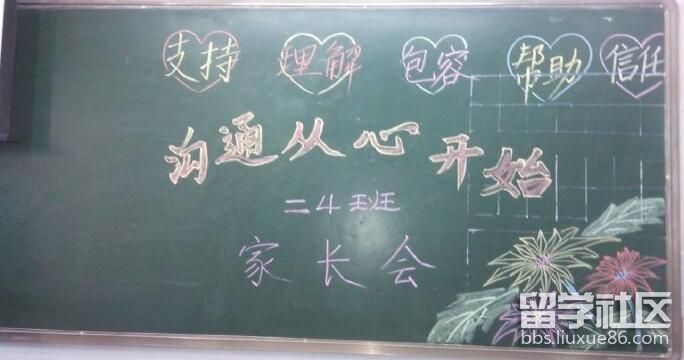 支持 理解 包容 帮助 信任
沟通从心开始
二4班
家长会
留学社区
bbs.liuxue86.com